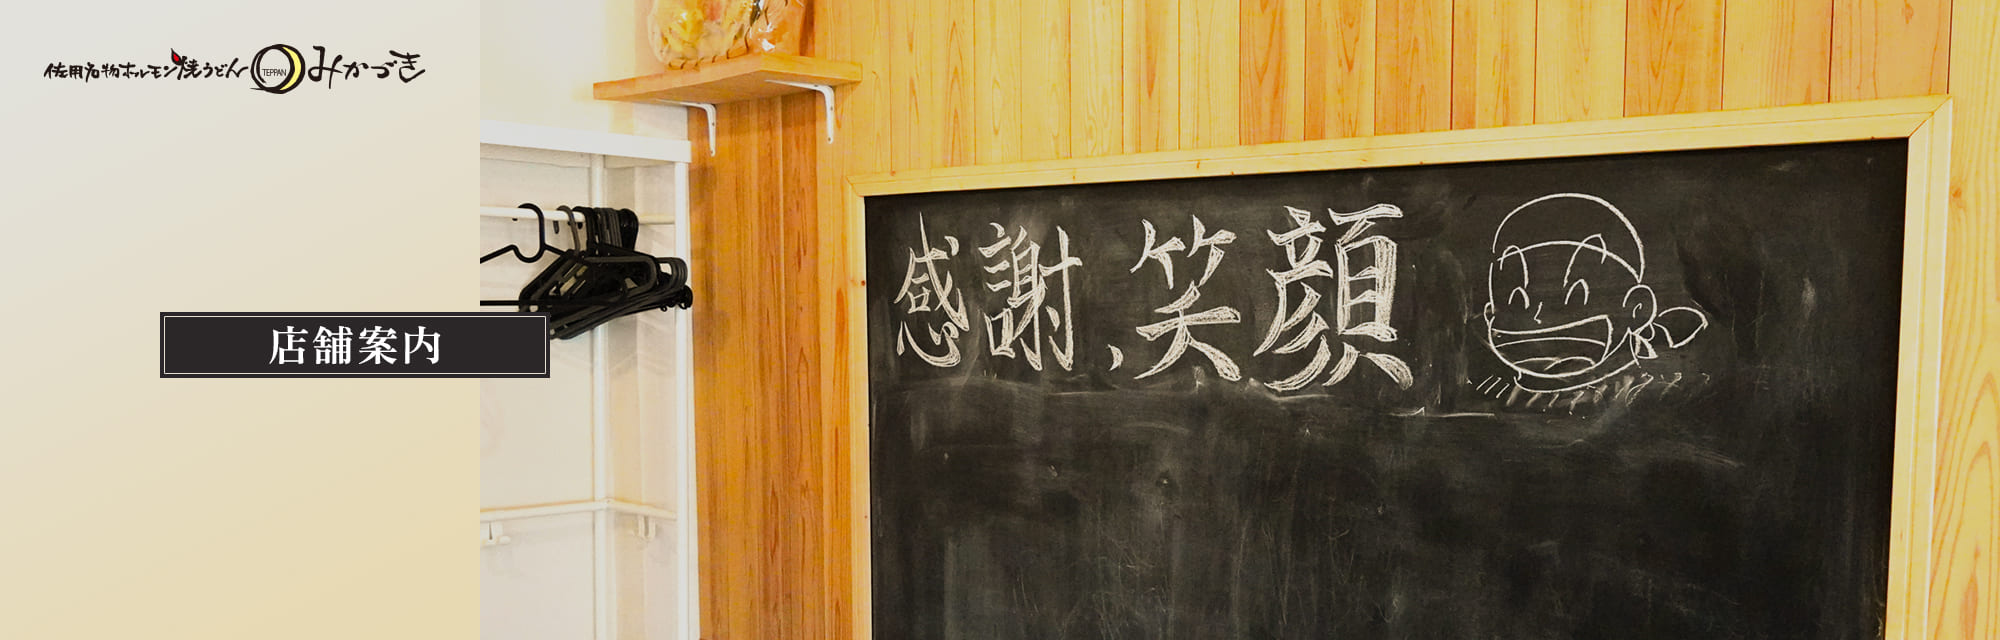 佐用名物ホルモン焼うどん TEPPAN みかづき
店舗案内
感謝、笑顔